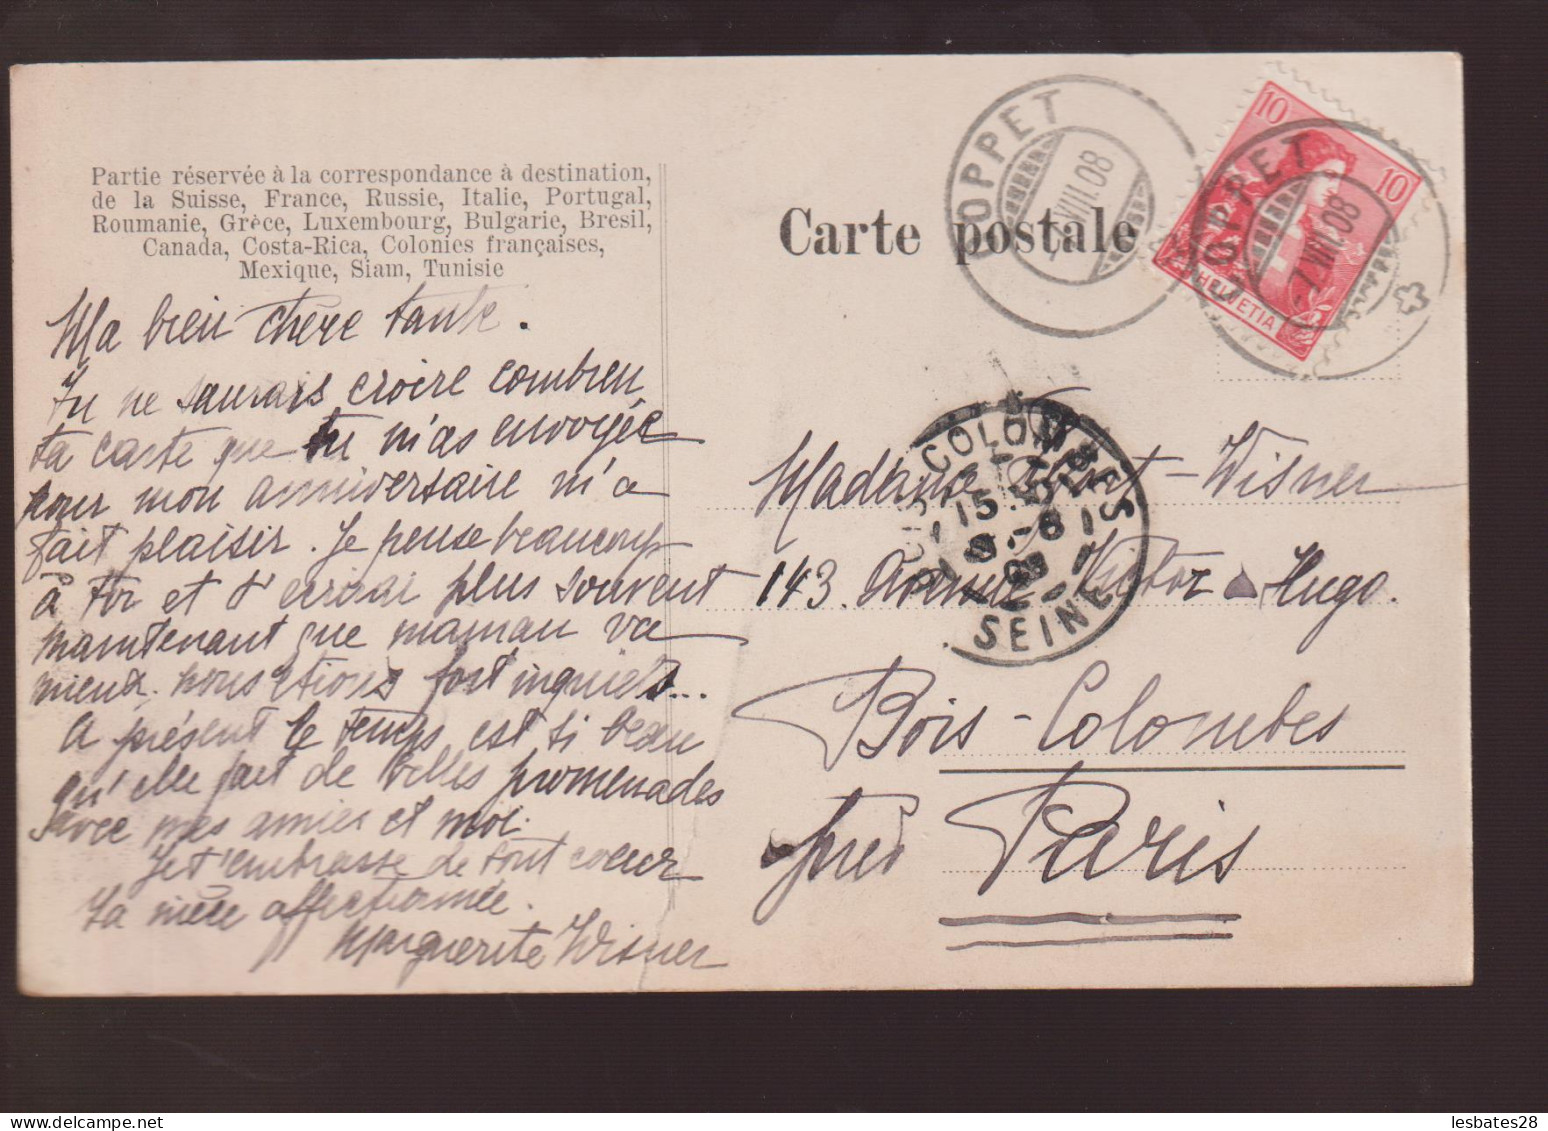 Partie réservée à la correspondance à destination,
de la Suisse, France, Russie, Italie, Portugal,
Roumanie, Grèce, Luxembourg, Bulgarie, Bresil,
Canada, Costa-Rica, Colonies françaises,
Mexique, Siam, Tunisie
Ma bien chère tante.
Tu ne saurais croire combien
ta carte que tu m'as envoyée
pour mon anniversaire m'a
fait plaisir. Je pense beaucoup
à toi et t'écrirai plus souvent
maintenant que maman va
mieux. nous étions fort inquiets...
A présent le temps est si beau
qu'elle fait de belles promenades
avec mes amies et moi.
Je t'embrasse de tout coeur
Ta nièce affectionnée.
Marguerite Wisner
Carte postale
COPPET
7.VIII.08
10
10
HELVETIA
COPPET
-7.VIII.08
BOIS-COLOMBES
15
8-8
SEINE
Madame Wisner
143. Avenue Victor Hugo.
Bois-Colombes
près Paris
lesbates28